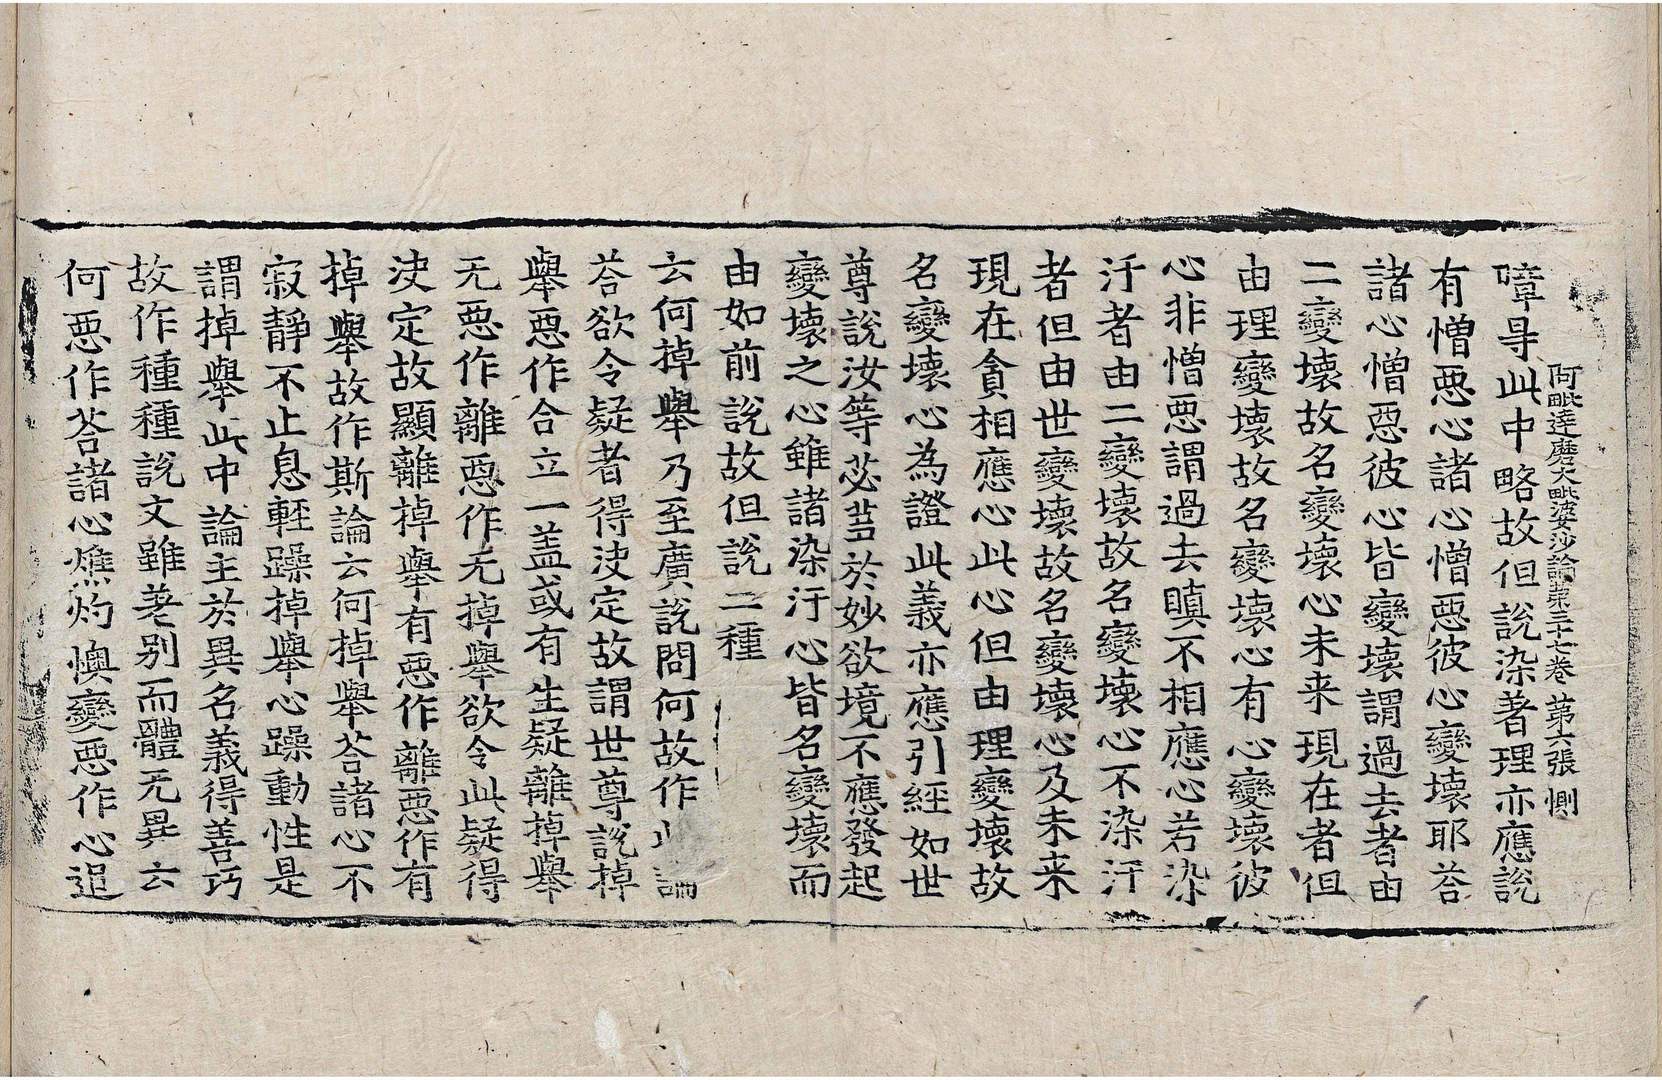 阿毗達磨大毗婆沙論第三十七卷 第六張 惻
嘷㝵此中略故但說染著理亦應說
有憎惡心諸心憎惡彼心變壞耶荅
諸心憎惡彼心皆變壞謂過去者由
二變壞故名變壞心未来現在者但
由理變壞故名變壞心有心變壞彼
心非憎惡謂過去瞋不相應心若染
汙者由二變壞故名變壞心不染汙
者但由世變壞故名變壞心及未来
現在貪相應心此心但由理變壞故
名變壞心為證此義亦應引經如世
尊說汝等苾蒭於妙欲境不應發起
變壞之心雖諸染汙心皆名變壞而
由如前說故但說二種
云何掉舉乃至廣說問何故作此論
荅欲令疑者得決定故謂世尊說掉
舉惡作合立一蓋或有生疑離掉舉
无惡作離惡作无掉舉欲令此疑得
決定故顯離掉舉有惡作離惡作有
掉舉故作斯論云何掉舉荅諸心不
寂靜不止息輕躁掉舉心躁動性是
謂掉舉此中論主於異名義得善巧
故作種種說文雖差別而體无異云
何惡作荅諸心燋灼懊變惡作心追